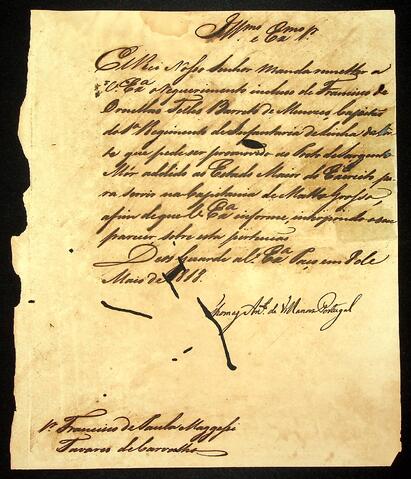 Illmo Exmo Sr.
El Rei Nosso Senhor Manda remetter a
V. Exa o requerimento incluso de Francisco de
Ornellas Telles Barreto de Menezes, Capitão
do 1º Regimento de Infantaria de Linha
que pede ser promovido ao Posto de Sargento
Mór addido ao Estado Maior do Exercito pa
ra servir na Capitania de Matto Grosso,
afim de que V. Exa informe, interpondo o seu
parecer sobre esta pertenção
Deos guarde a V. Exa Paço em 8 de
Maio de 1818.
Thomaz Anto. de Villanova Portugal
Sr. Francisco de Paula Maggessi
Tavares de Carvalho